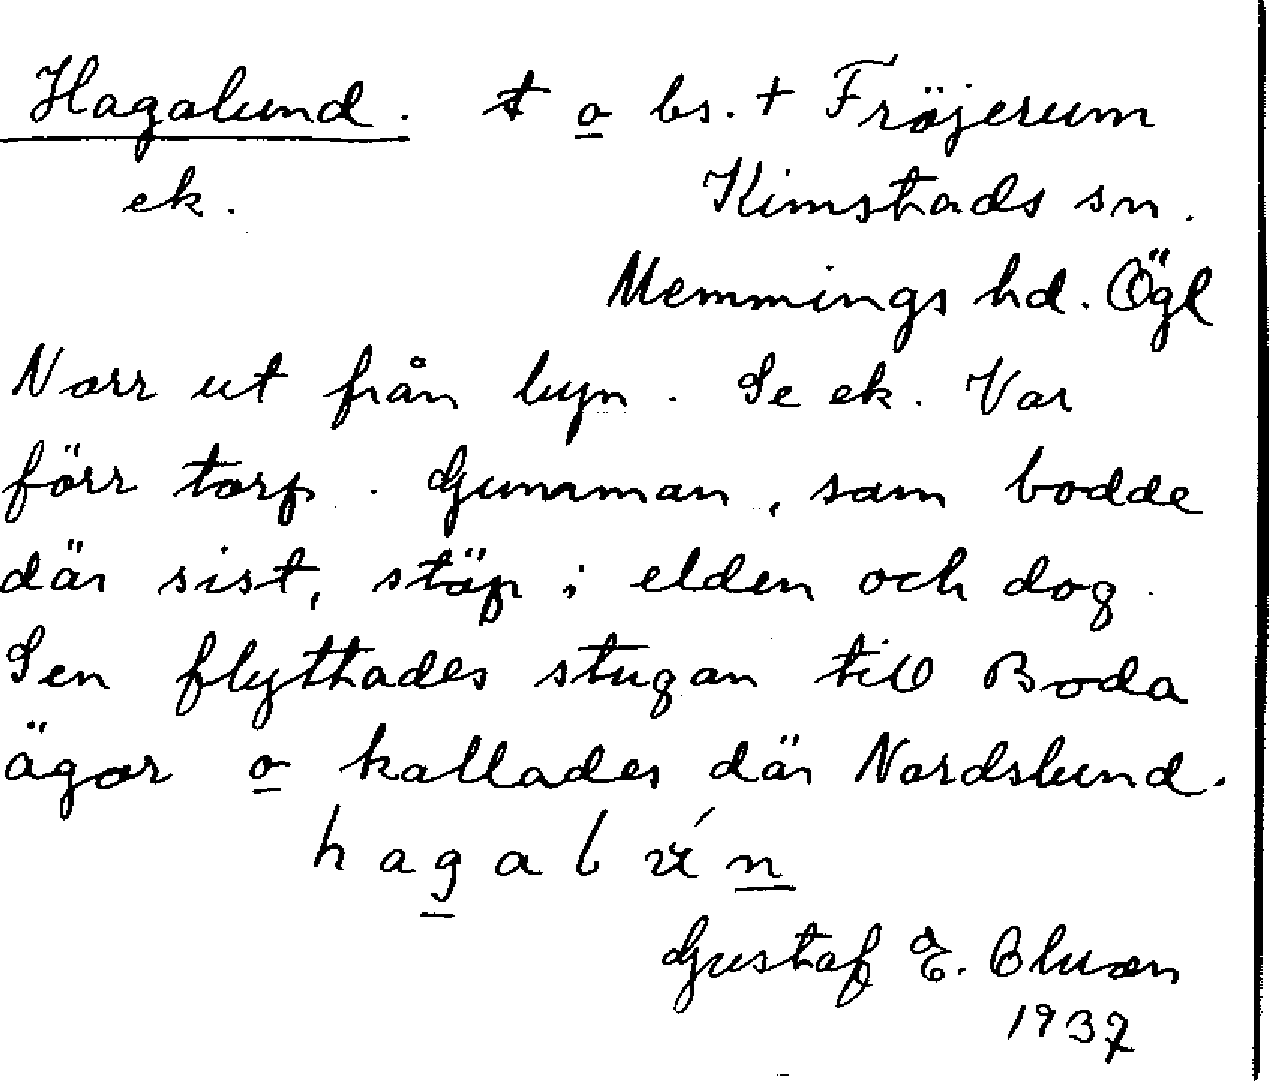 Hagalund. t o bs. + Fröjerum
ek. Kimstads sn.
Memmings hd. Ögl
Norr ut från byn. Se ek. Var
förr torp. Gumman, som bodde
där sist, stöp i elden och dog.
Sen flyttades stugan till Boda
ägor o kallades där Nordslund.
h a g a l n
Gustaf E.
1937